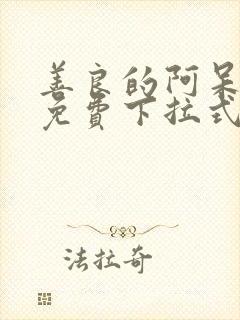 善良的阿呆
免費下拉式
法拉奇